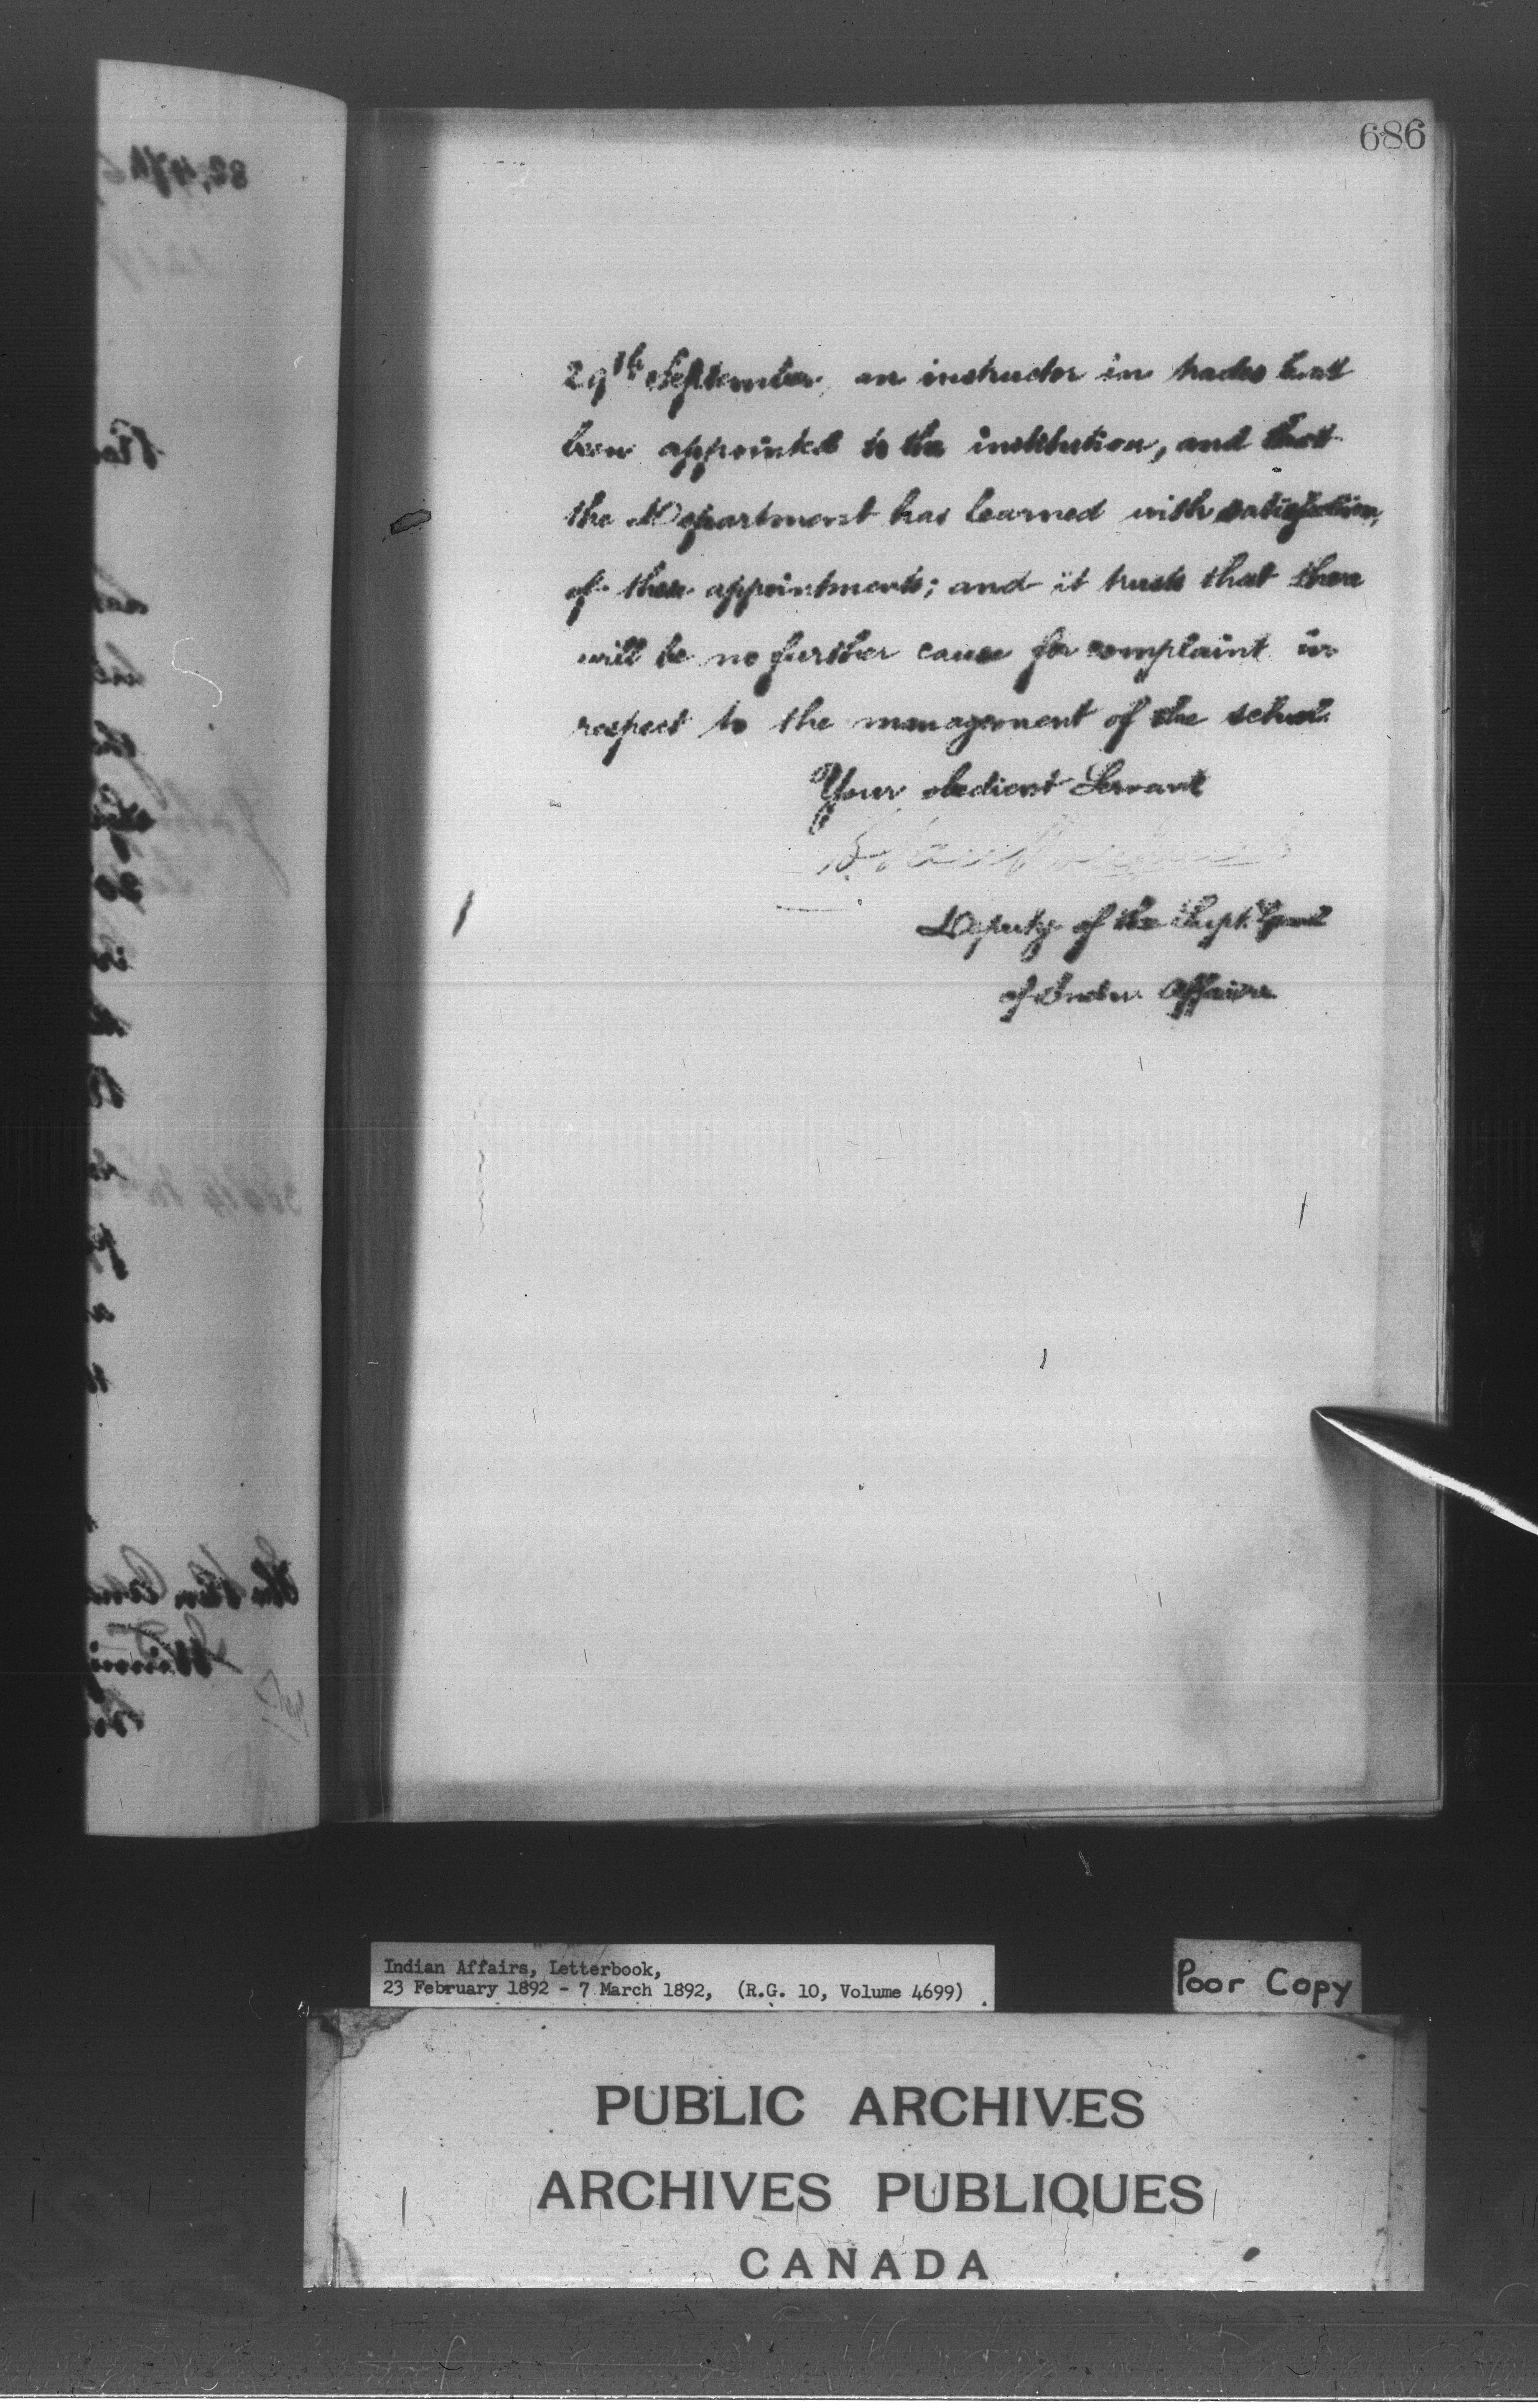 686
29th September, an instructor in trades had
been appointed to the institution, and that
the Department has learned with satisfaction,
of these appointments; and it trusts that there
will be no further cause for complaint in
respect to the management of the school.
Your obedient Servant
Deputy of the Supt. Genl
of Indn. Affairs
Indian Affairs, Letterbook,
23 February 1892 - 7 March 1892, (R.G. 10, Volume 4699)
Poor Copy
PUBLIC ARCHIVES
ARCHIVES PUBLIQUES
CANADA